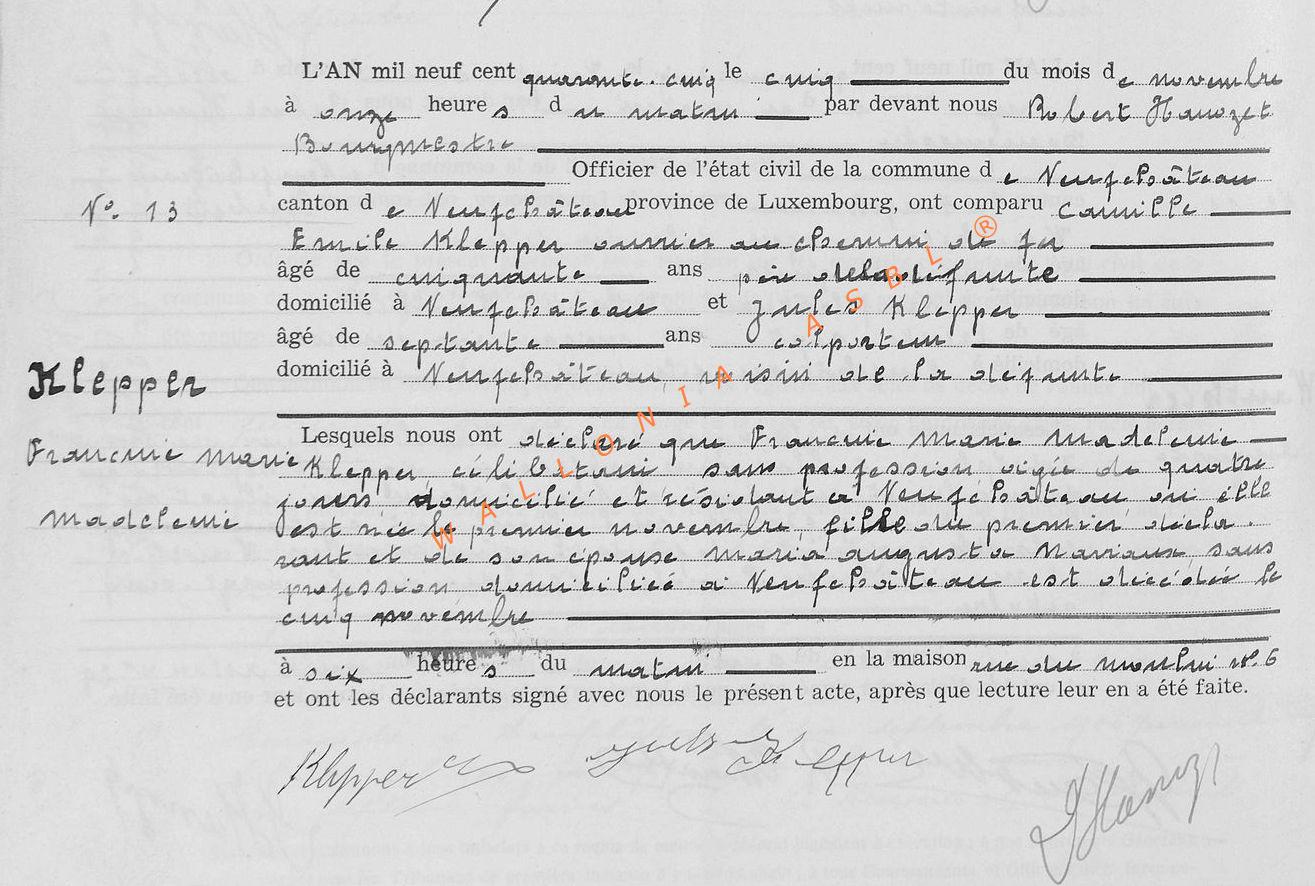 L'AN mil neuf cent quarante-cinq le cinq du mois de novembre
à onze heures du matin par devant nous Robert
Bourgmestre
Officier de l'état civil de la commune de Neufchâteau
N° 13
canton de Neufchâteau province de Luxembourg, ont comparu Camille
Emile Klepper ouvrier au chemin de fer
âgé de cinquante ans père de la défunte
domicilié à Neufchâteau et Jules Klepper
âgé de septante ans colporteur
domicilié à Neufchâteau, voisin de la défunte
Klepper
Francine Marie
Madeleine
Lesquels nous ont déclaré que Francine Marie Madeleine
Klepper, célibataire sans profession âgée de quatre
jours domicilié et résidant à Neufchâteau où elle
est née le premier novembre, fille du premier décla-
rant et de son épouse Maria Augusta Naviaux sans
profession, domiciliée à Neufchâteau est décédée le
cinq novembre
à six heures du matin en la maison rue du moulin N° 6
et ont les déclarants signé avec nous le présent acte, après que lecture leur en a été faite.
Klepper
Jules Klepper
WALLONIA ASBL ®